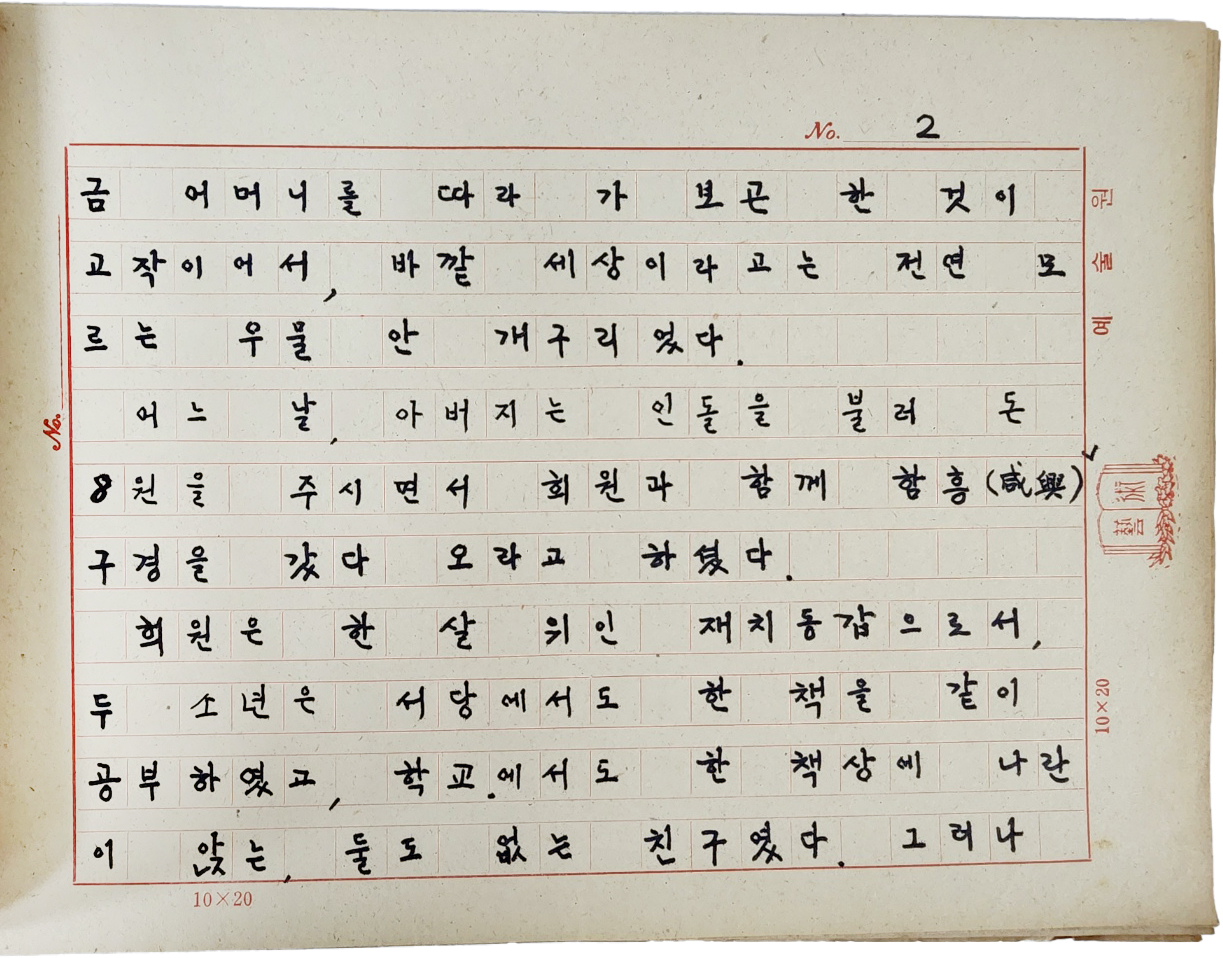 No. 2
금 어머니를 따라 가 보곤 한 것이
고작이어서, 바깥 세상이라고는 전연 모
르는 우물 안 개구리였다.
어느 날, 아버지는 인돌을 불러 돈
8원을 주시면서 희원과 함께 함흥(咸興)
구경을 갔다 오라고 하셨다.
희원은 한 살 위인 재치동갑으로서,
두 소년은 서당에서도 한 책을 같이
공부하였고, 학교에서도 한 책상에 나란
이 앉는, 둘도 없는 친구였다. 그러나
10×20
No.
예술원
藝術
10×20